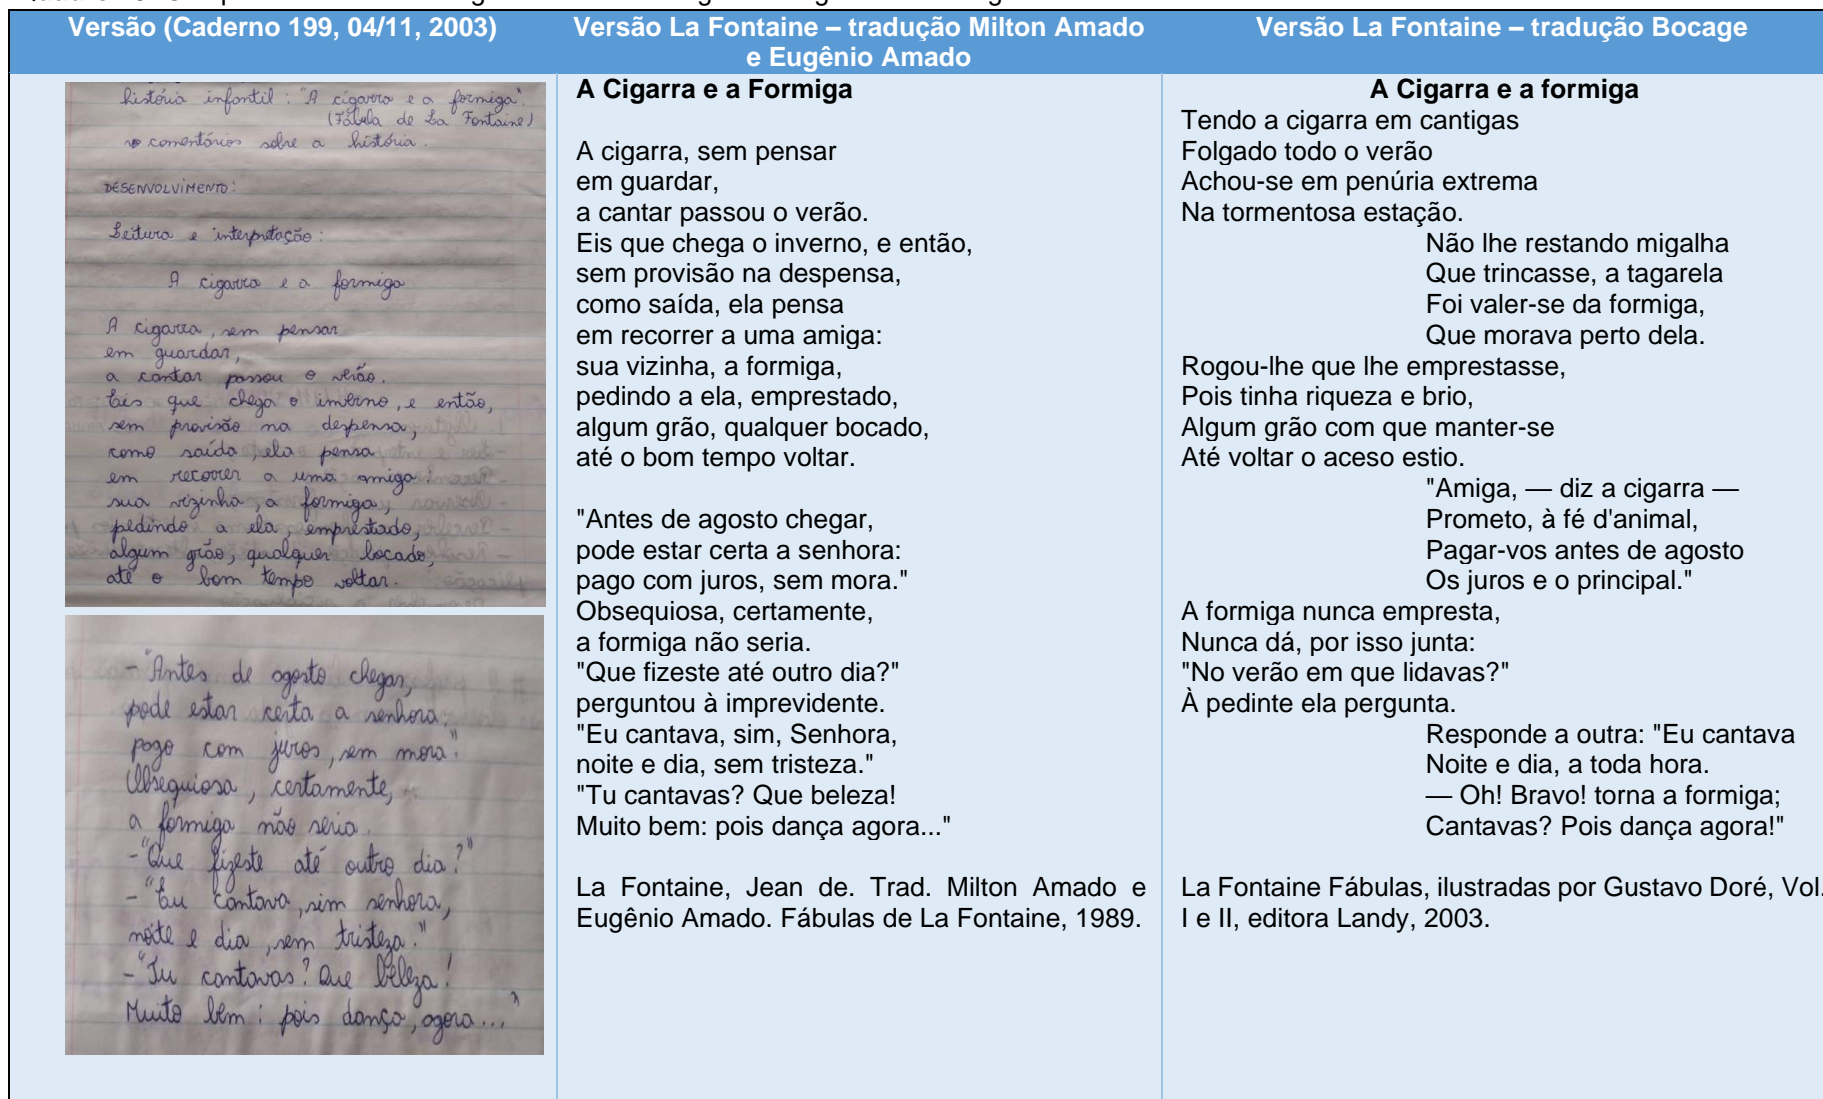 Versão (Caderno 199, 04/11, 2003)
história infantil: "A cigarra e a formiga".
(Fábula de La Fontaine)
comentários sobre a história.
DESENVOLVIMENTO:
Leitura e interpretação:
A cigarra e a formiga
A cigarra, sem pensar
em guardar,
a cantar passou o verão.
Eis que chega o inverno, e então,
sem provisão na despensa,
como saída, ela pensa
em recorrer a uma amiga:
sua vizinha, a formiga,
pedindo a ela, emprestado,
algum grão, qualquer bocado,
até o bom tempo voltar.
- "Antes de agosto chegar,
pode estar certa a senhora:
pago com juros, sem mora."
Obsequiosa, certamente,
a formiga não seria.
- "Que fizeste até outro dia?"
- "Eu cantava, sim senhora,
noite e dia, sem tristeza."
- "Tu cantavas? Que beleza!
Muito bem: pois dança, agora..."
Versão La Fontaine – tradução Milton Amado
e Eugênio Amado
A Cigarra e a Formiga
A cigarra, sem pensar
em guardar,
a cantar passou o verão.
Eis que chega o inverno, e então,
sem provisão na despensa,
como saída, ela pensa
em recorrer a uma amiga:
sua vizinha, a formiga,
pedindo a ela, emprestado,
algum grão, qualquer bocado,
até o bom tempo voltar.
"Antes de agosto chegar,
pode estar certa a senhora:
pago com juros, sem mora."
Obsequiosa, certamente,
a formiga não seria.
"Que fizeste até outro dia?"
perguntou à imprevidente.
"Eu cantava, sim, Senhora,
noite e dia, sem tristeza."
"Tu cantavas? Que beleza!
Muito bem: pois dança agora..."
La Fontaine, Jean de. Trad. Milton Amado e
Eugênio Amado. Fábulas de La Fontaine, 1989.
Versão La Fontaine – tradução Bocage
A Cigarra e a formiga
Tendo a cigarra em cantigas
Folgado todo o verão
Achou-se em penúria extrema
Na tormentosa estação.
Não lhe restando migalha
Que trincasse, a tagarela
Foi valer-se da formiga,
Que morava perto dela.
Rogou-lhe que lhe emprestasse,
Pois tinha riqueza e brio,
Algum grão com que manter-se
Até voltar o aceso estio.
"Amiga, — diz a cigarra —
Prometo, à fé d'animal,
Pagar-vos antes de agosto
Os juros e o principal."
A formiga nunca empresta,
Nunca dá, por isso junta:
"No verão em que lidavas?"
À pedinte ela pergunta.
Responde a outra: "Eu cantava
Noite e dia, a toda hora.
— Oh! Bravo! torna a formiga;
Cantavas? Pois dança agora!"
La Fontaine Fábulas, ilustradas por Gustavo Doré, Vol.
I e II, editora Landy, 2003.